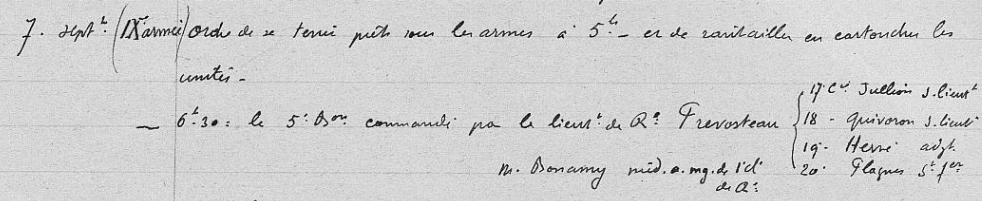 7. Sept^bre (IX^e armée) ordre de se tenir prêts sous les armes à 5^h - et de ravitailler en cartouches les
unités -
- 6^h30 : le 5^e B^on commandé par le lieut^t de R^e Prevosteau
17^e C^ie Jullien s. lieut^t
18 - Quivoron s. lieut^t
19 - Hervé adj^t.
20 - Plagnes s^t f^er
M. Bonamy méd. a. mg. de 1^e cl
de R^e